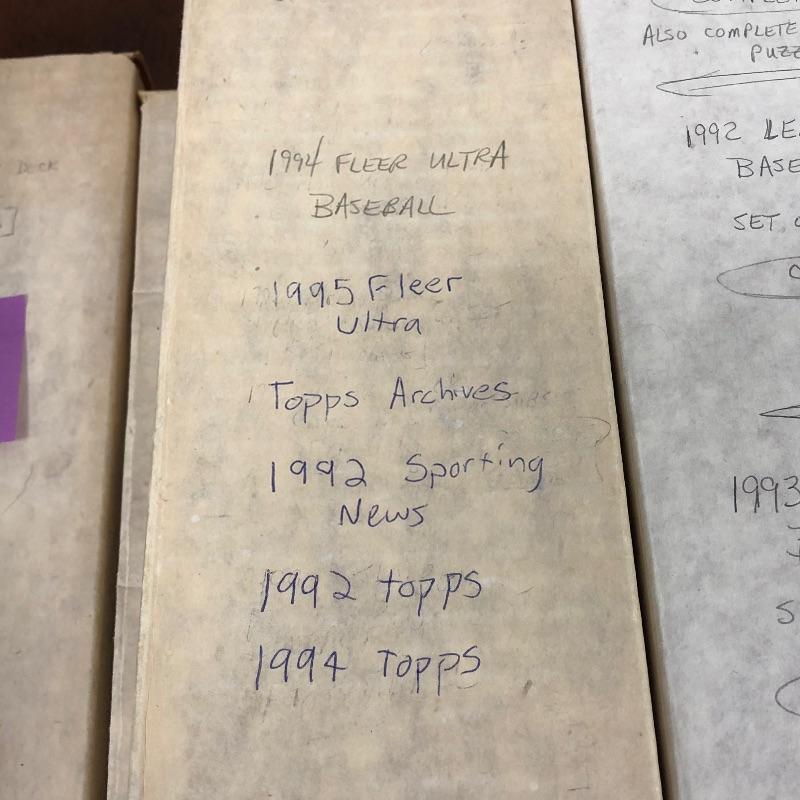 DECK
1994 FLEER ULTRA
BASEBALL
1995 Fleer
Ultra
Topps Archives
1992 Sporting
News
1992 topps
1994 Topps
ALSO COMPLETE
PUZZ
1992 LEA
BASE
SET
1993
S